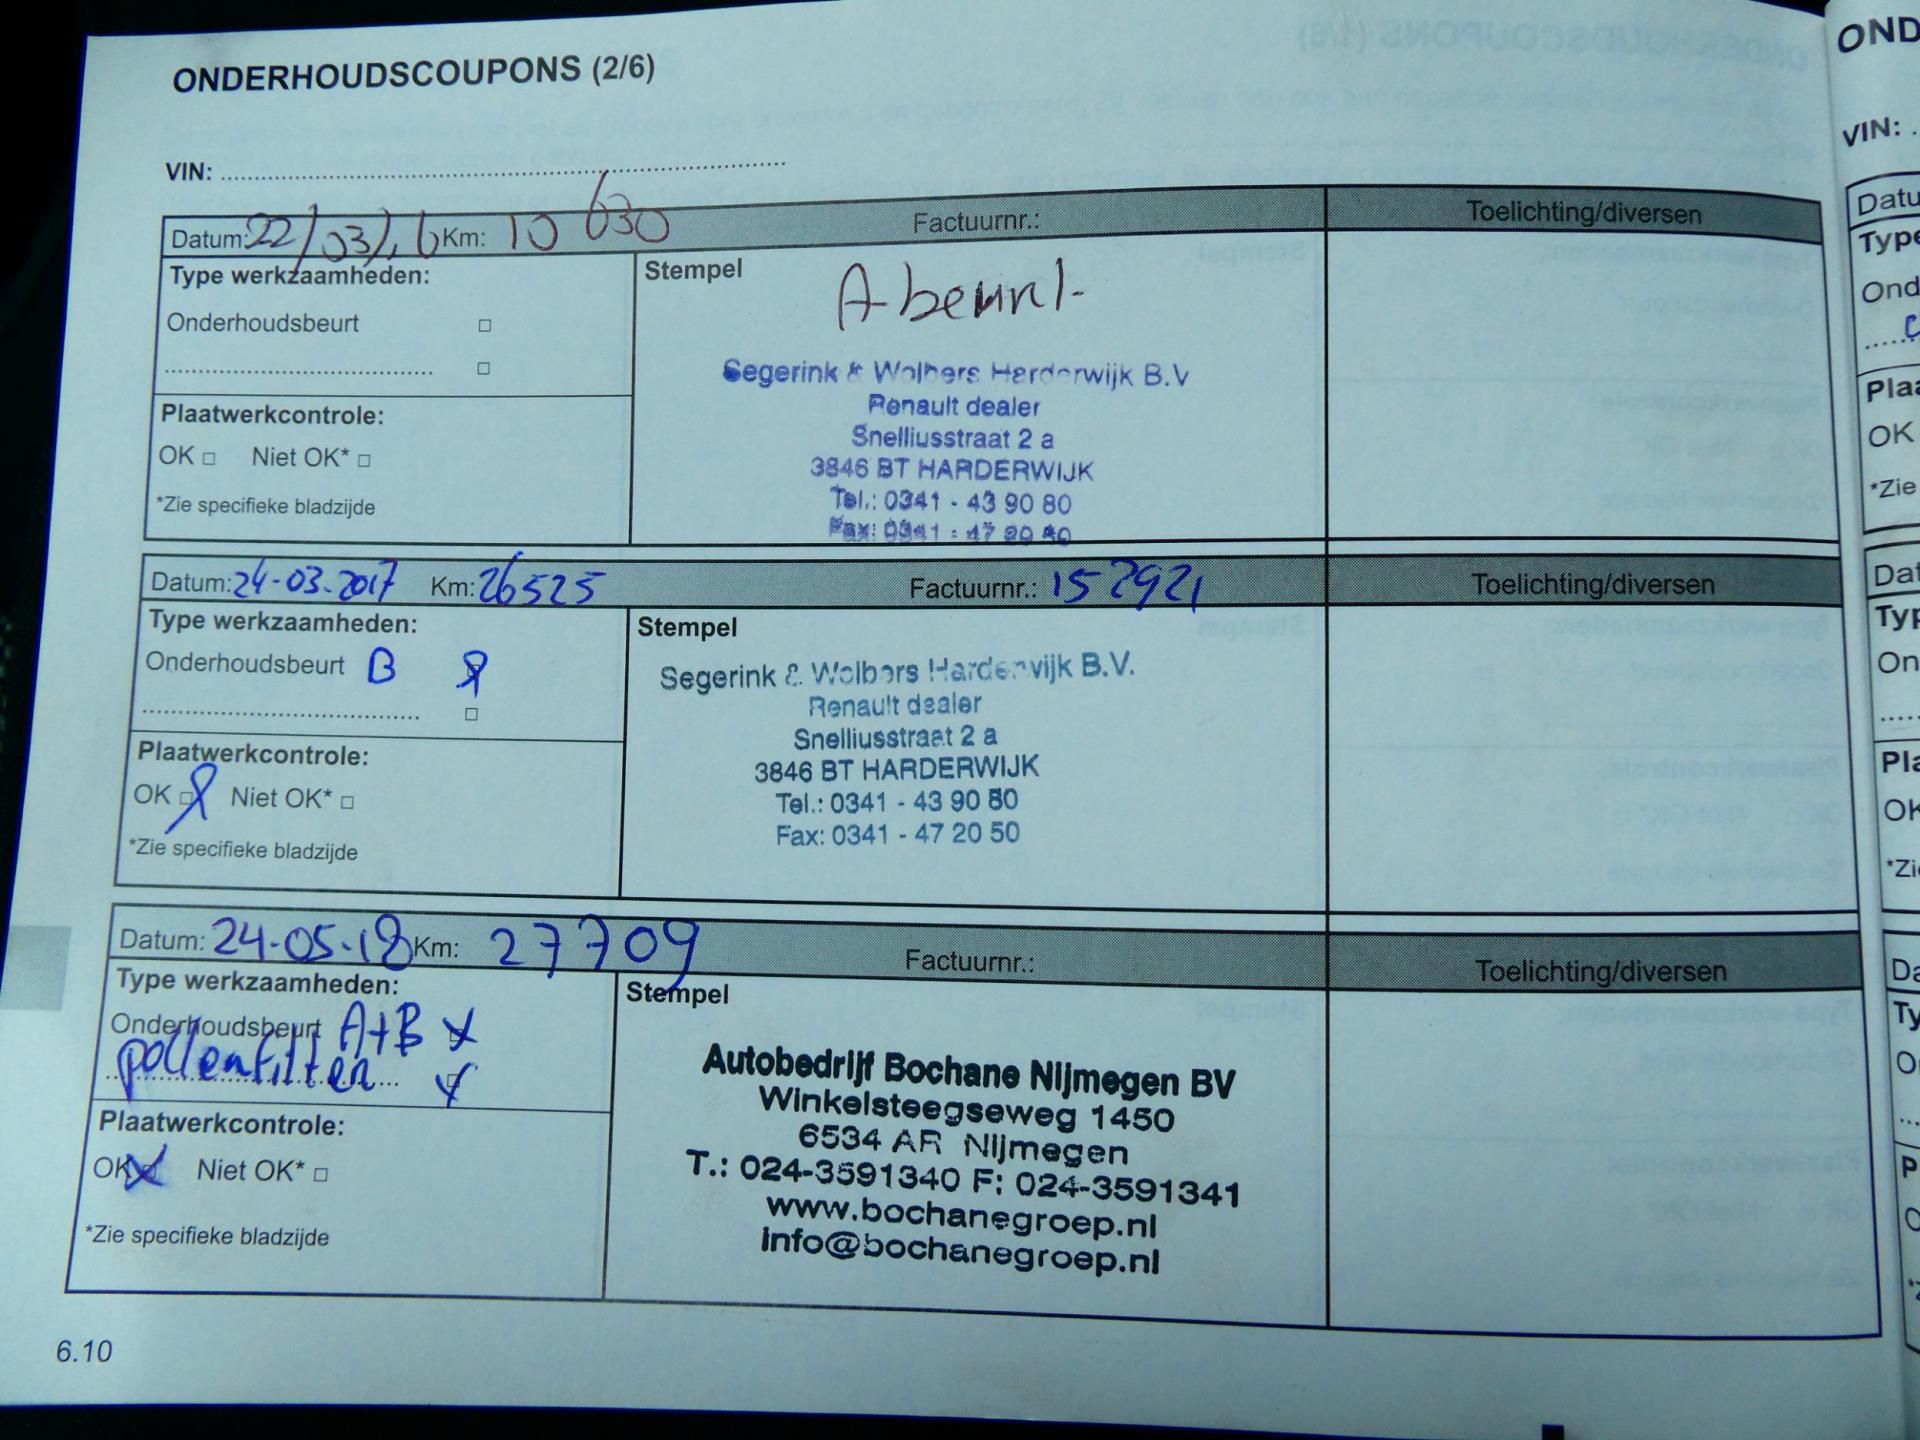 ONDERHOUDSCOUPONS (2/6)
VIN: ....................
Datum: 22/03/16 Km: 10 630 Factuurnr.: Toelichting/diversen
Type werkzaamheden:
Onderhoudsbeurt □
.................... □
Plaatwerkcontrole:
OK □ Niet OK* □
*Zie specifieke bladzijde
Stempel
A-beurt
Segerink & Wolbers Harderwijk B.V
Renault dealer
Snelliusstraat 2 a
3846 BT HARDERWIJK
Tel.: 0341 - 43 90 80
Fax: 0341 - 47 20 50
Datum: 24-03-2017 Km: 26525 Factuurnr.: 152921 Toelichting/diversen
Type werkzaamheden:
Onderhoudsbeurt B
.................... □
Plaatwerkcontrole:
OK Niet OK* □
*Zie specifieke bladzijde
Stempel
Segerink & Wolbers Harderwijk B.V.
Renault dealer
Snelliusstraat 2 a
3846 BT HARDERWIJK
Tel.: 0341 - 43 90 80
Fax: 0341 - 47 20 50
Datum: 24-05-18 Km: 27709 Factuurnr.: Toelichting/diversen
Type werkzaamheden:
Onderhoudsbeurt A+B x
pollenfilter x
Plaatwerkcontrole:
OK x Niet OK* □
*Zie specifieke bladzijde
Stempel
Autobedrijf Bochane Nijmegen BV
Winkelsteegseweg 1450
6534 AR Nijmegen
T.: 024-3591340 F: 024-3591341
www.bochanegroep.nl
info@bochanegroep.nl
6.10
VIN: .
OK
*Zie
OK